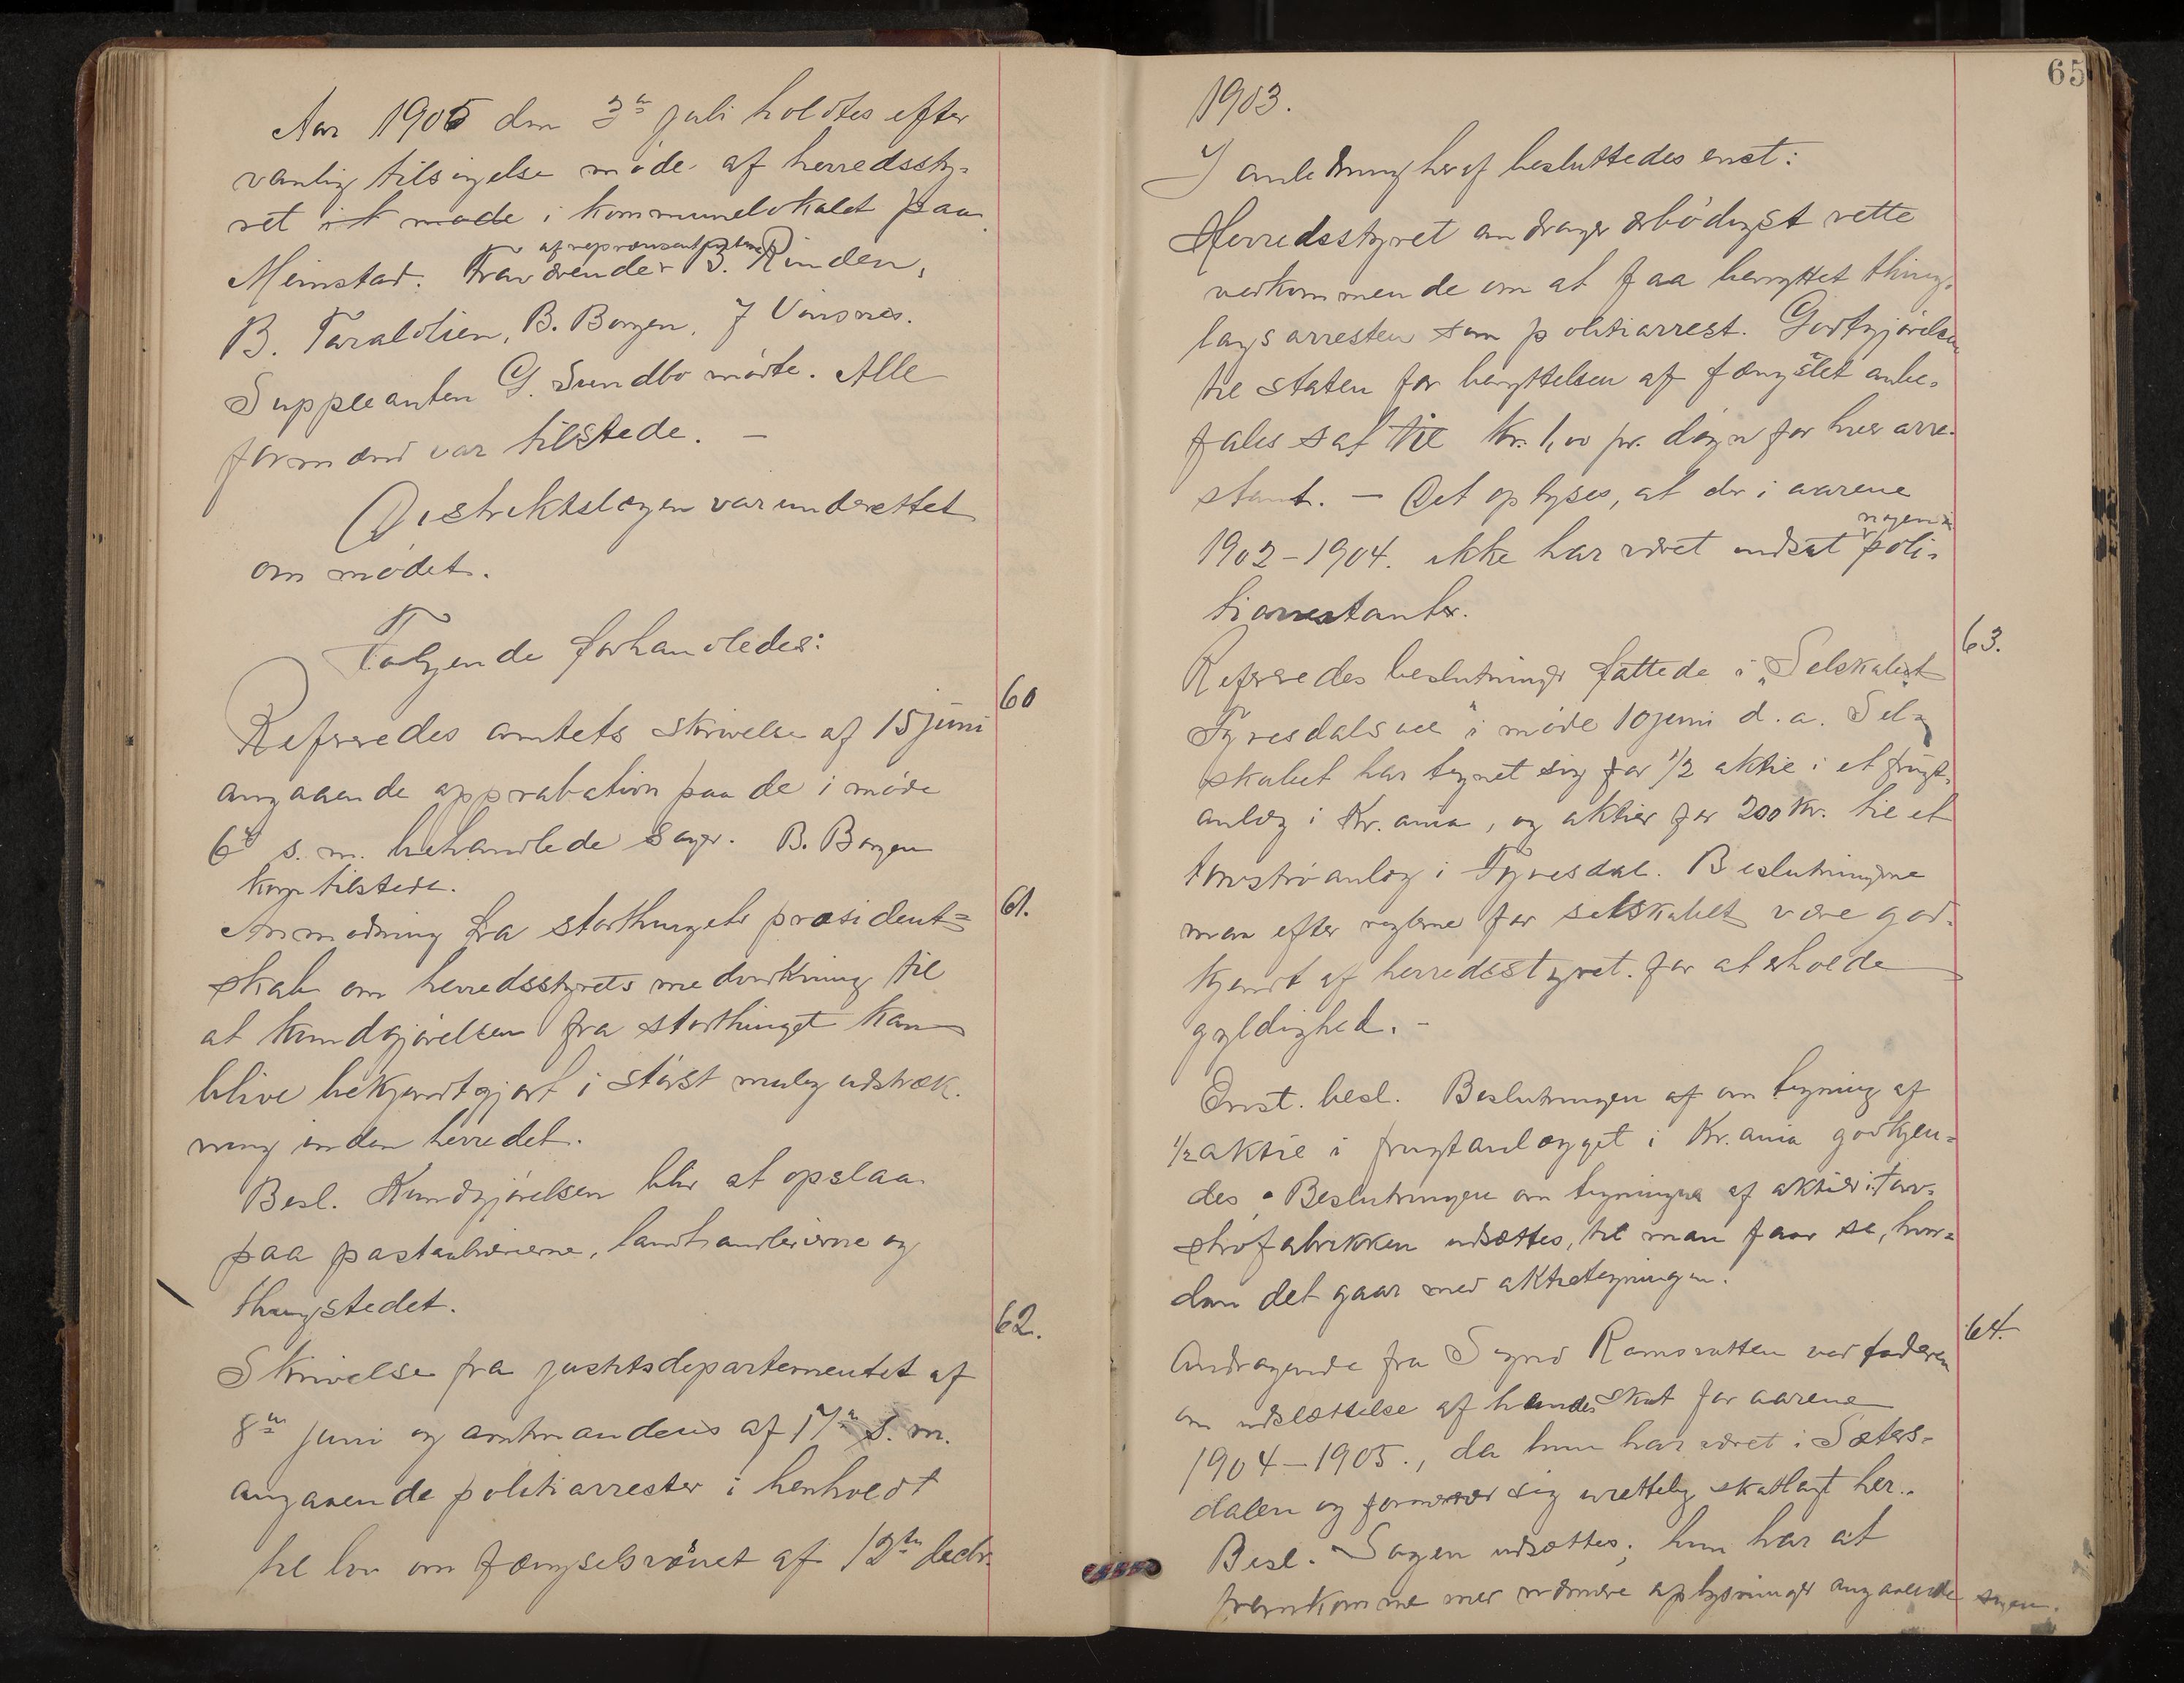 Aar 1905 den 3de juli holdtes efter
vanlig tilsigelse møde af herredssty-
ret et møde i kommunelokalet paa
Meinstad. Fraværende B. Rinden,
B. Taraldlien, B. Borgen, J Vinsnes.
Suppleanten G. Sundbø mødte. Alle
formænd var tilstede. —
Distriktslægen var underrettet
om mødet.
Følgende forhandledes:
60
Refereredes amtets skrivelse af 15 juni
angaaende approbation paa de i møde
6te s. m. behandlede sager. B. Borgen
kom tilstede.
61.
Anmodning fra storthingets præsident=
skab om herredsstyrets medvirkning til
at kundgjørelsen fra storthinget kan
blive bekjendtgjort i størst mulig udstræk-
ning inden herredet.
Besl. Kundgjørelsen blir at opslaa
paa postaabnerierne, landhandlerierne og
thingstedet.
62.
Skrivelse fra justitsdepartementet af
8de juni og amtmandens af 17de s. m.
angaaende politiarrester i henhold
til lov om fængselsvæsnet af 12te decbr.
65
1903.
I anledning heraf besluttedes enst:
Herredsstyret andrager ærbødigst rette
vedkommende om at faa benyttet thing-
lagsarresten som politiarrest. Godtgjørelsen
til staten for benyttelsen af fængslet anbe-
fales sat til kr. 1,00 pr. døgn for hver arre-
stant. — Det oplyses, at der i aarene
1902-1904. ikke har været indsat nogen poli-
tiarrestanter.
63.
Refereredes beslutninger fattede i "Selskabet
Tyresdals vel" i møde 10 juni d. a. Sel-
skabet har tegnet sig for 1/2 aktie i et frugt-
anlæg i Kr.ania, og aktier for 200 kr. til et
torvstrøanlæg i Tyresdal. Beslutningerne
maa efter reglerne for selskabet være god-
kjendt af herredsstyret for at erholde
gyldighed. -
Enst. besl. Beslutningen af om tegning af
1/2 aktie i frugtanlægget i Kr.ania godkjen-
des. Beslutningen om tegningen af aktier i torv-
strøfabrikken udsættes, til man faar se, hvor-
dan det gaar med aktietegningen.
64.
Andragende fra Sigrid Ramsvatten ved faderen
om udslettelse af hendes skat for aarene
1904-1905., da hun har været i Sæters-
dalen og formener sig urettelig skatlagt her.
Besl. Sagen udsættes; hun har at
fremkomme med nærmere oplysninger angaaende sagen.